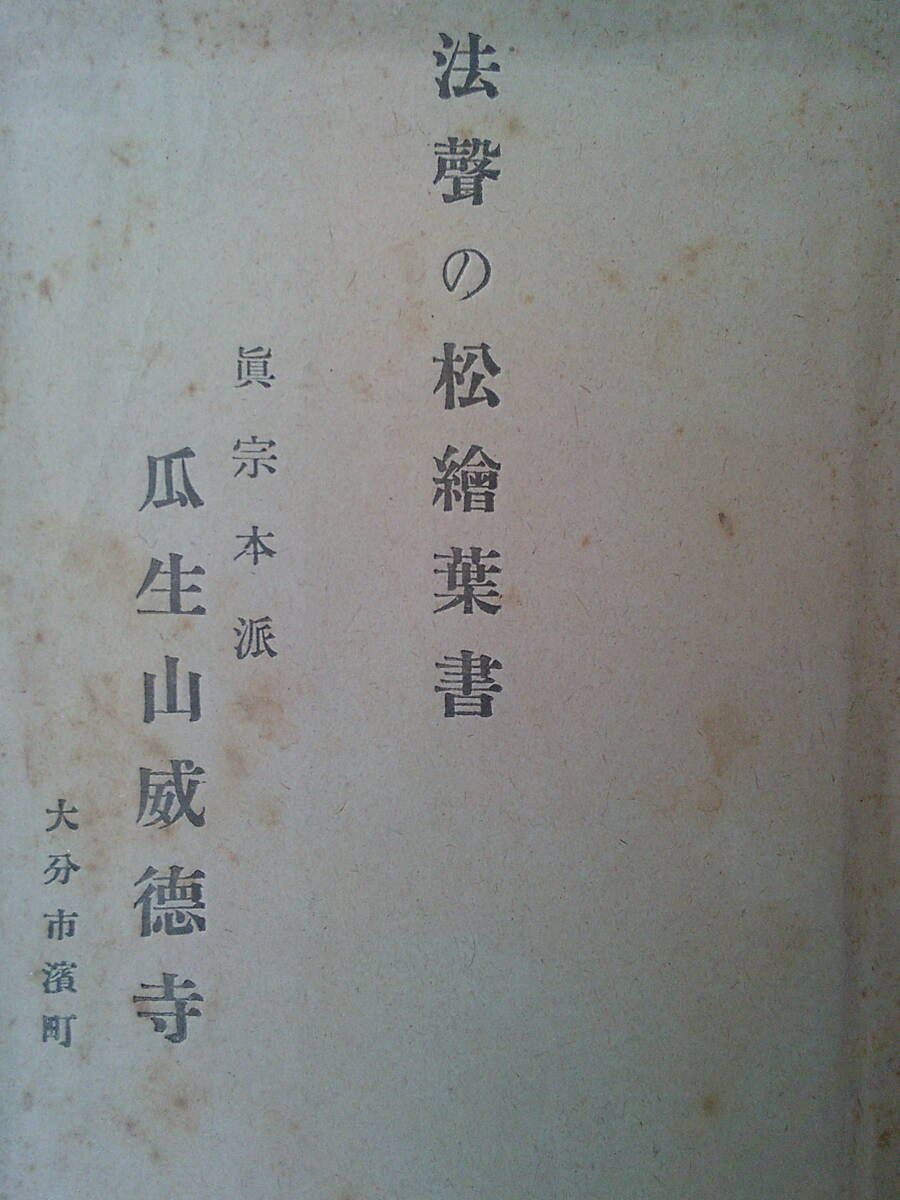 法聲の松繪葉書
眞宗本派
瓜生山威德寺
大分市濱町